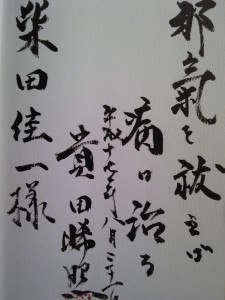 邪氣を祓えば
病は治る
平成十七年八月二十一日
貴田晞照
柴田佳一様